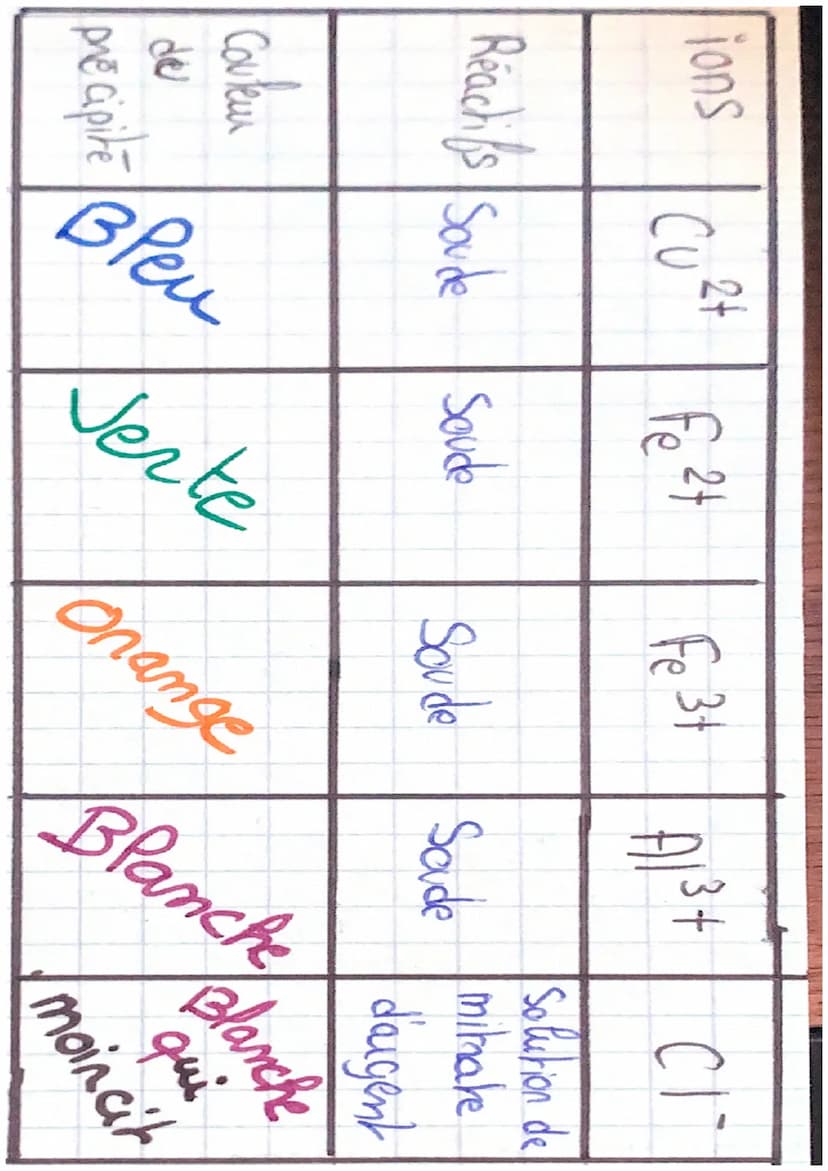 ions
Cu²⁺
Fe²⁺
Fe³⁺
Al³⁺
Cl⁻
Réactifs
Soude
Soude
Soude
Soude
Solution de
nitrate
d'argent
Couleur
de
précipité
Bleu
Verte
Orange
Blanche
Blanche
qui
noircit